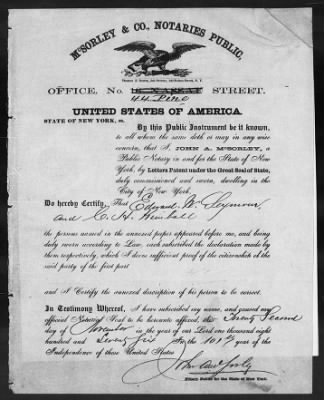 McSORLEY & CO., NOTARIES PUBLIC,
OFFICE, No. 16 NASSAU STREET.
44 Pine
UNITED STATES OF AMERICA.
STATE OF NEW YORK, ss.
By this Public Instrument be it known,
to all whom the same doth or may in any wise
concern, that I, JOHN A. McSORLEY, a
Public Notary in and for the State of New
York, by Letters Patent under the Great Seal of State,
duly commissioned and sworn, dwelling in the
City of New York.
Do hereby Certify, That Edward W. Seymour
and C. H. Kimball
the persons named in the annexed paper appeared before me, and being
duly sworn according to Law, each subscribed the declaration made by
them respectively, which I deem sufficient proof of the citizenship of the
said party of the first part
and I Certify the annexed description of his person to be correct.
In Testimony Whereof, I have subscribed my name, and caused my
official Notarial Seal to be hereunto affixed, this Twenty Second
day of November in the year of our Lord one thousand eight
hundred and Seventy Six in the 101st year of the
Independence of these United States
John A McSorley
Notary Public for the State of New York.